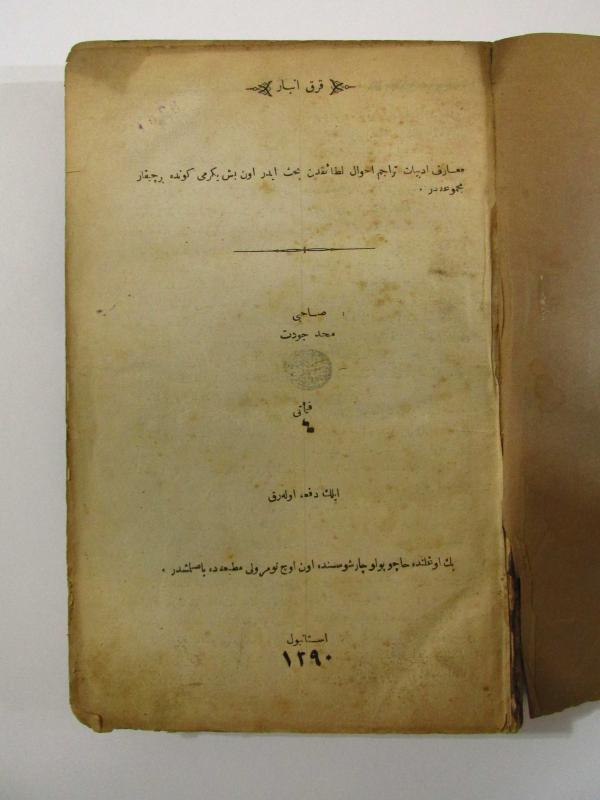 قرق انبار
معارف ادبیات تراجم احوال لطائفدن بحث ایدر اون بش یکرمی کونده بر چیقار
مجموعه در .
صاحبی
محمد جودت
فیأتی
ایلك دفعه اوله‌رق
بك اوغلنده حاچوپولو چارشوسنده اون اوچ نومرولی مطبعه‌ده باصلمشدر .
استانبول
١٢٩٠